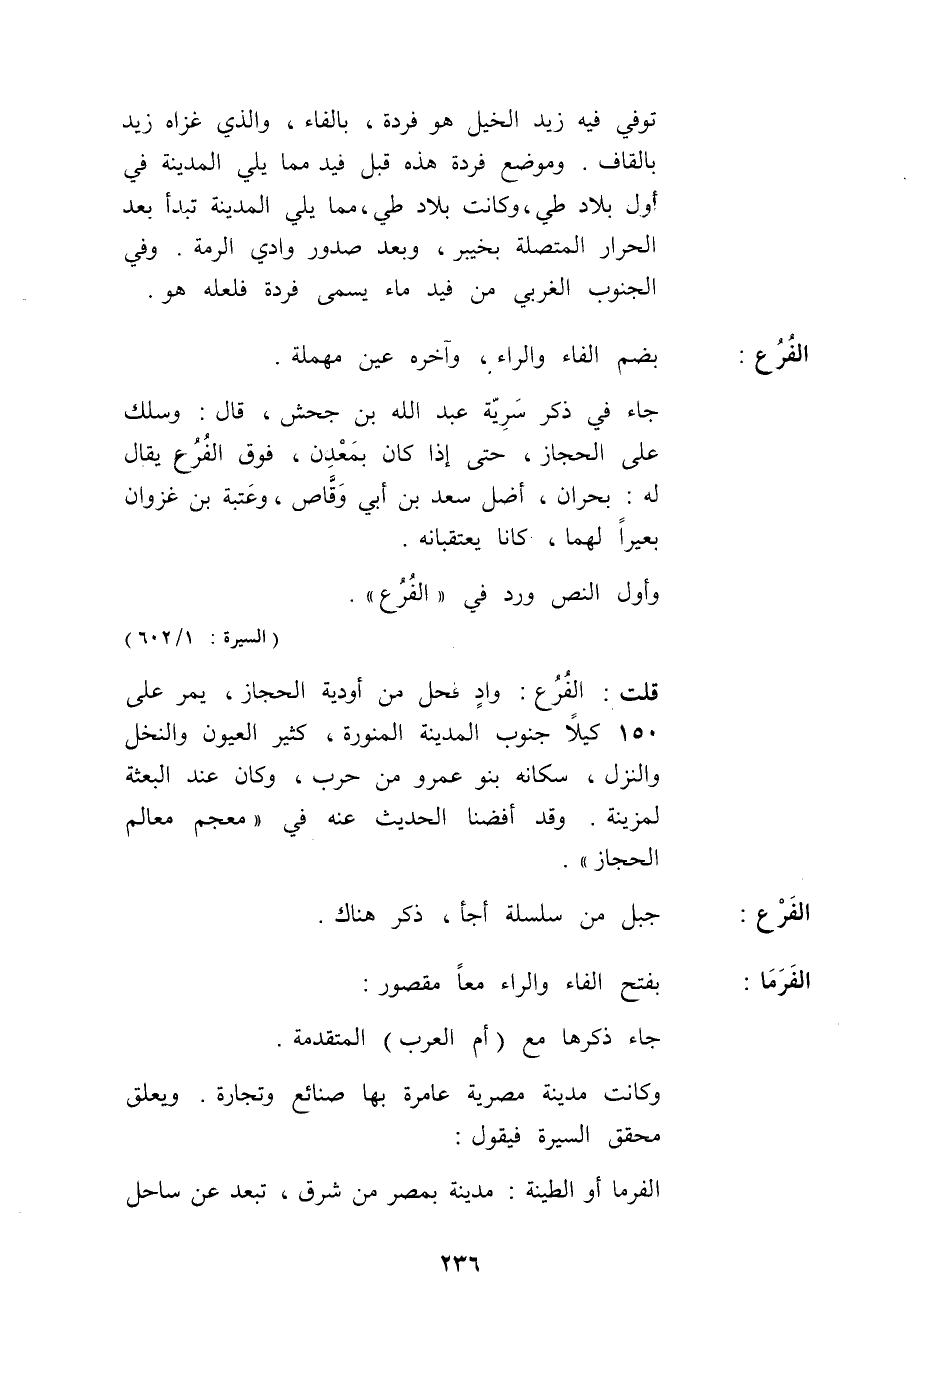 توفي فيه زيد الخيل هو فردة ، بالفاء ، والذي غزاه زيد
بالقاف . وموضع فردة هذه قبل فيد مما يلي المدينة في
أول بلاد طيء، وكانت بلاد طيء، مما يلي المدينة تبدأ بعد
الحرار المتصلة بخيبر ، وبعد صدور وادي الرمة . وفي
الجنوب الغربي من فيد ماء يسمى فردة فلعله هو .
الفُرُع : بضم الفاء والراء ، وآخره عين مهملة .
جاء في ذكر سَرِيّة عبد الله بن جحش ، قال : وسلك
على الحجاز ، حتى إذا كان بمَعْدِن ، فوق الفُرُع يقال
له : بحران ، أضل سعد بن أبي وَقَّاص ، وعَتبة بن غزوان
بعيراً لهما ، كانا يعتقبانه .
وأول النص ورد في « الفُرُع » .
( السيرة : ٦٠٢/١ )
قلت : الفُرُع : وادٍ فحل من أودية الحجاز ، يمر على
١٥٠ كيلاً جنوب المدينة المنورة ، كثير العيون والنخل
والنزل ، سكانه بنو عمرو من حرب ، وكان عند البعثة
لمزينة . وقد أفضنا الحديث عنه في « معجم معالم
الحجاز » .
الفَرْع : جبل من سلسلة أجأ ، ذكر هناك .
الفَرَمَا : بفتح الفاء والراء معاً مقصور :
جاء ذكرها مع ( أم العرب ) المتقدمة .
وكانت مدينة مصرية عامرة بها صنائع وتجارة . ويعلق
محقق السيرة فيقول :
الفرما أو الطينة : مدينة بمصر من شرق ، تبعد عن ساحل
٢٣٦